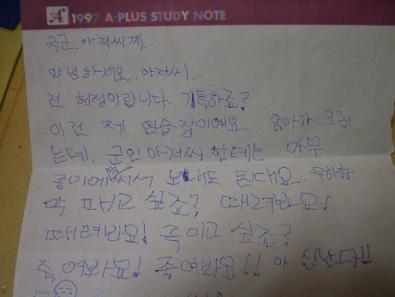 1997 A-PLUS STUDY NOTE
국군 아저씨께.
안녕하세요. 아저씨.
전 혜정이랍니다. 기특하죠?
이건 제 연습장이예요 엄마가 그러
는데, 군인 아저씨 한테는 아무
종이에 써서 보내도 된대요.
막 패고 싶죠? 때려봐요!
때려봐요! 죽이고 싶죠?
죽여봐요! 죽여봐요!! 아 신난다!!